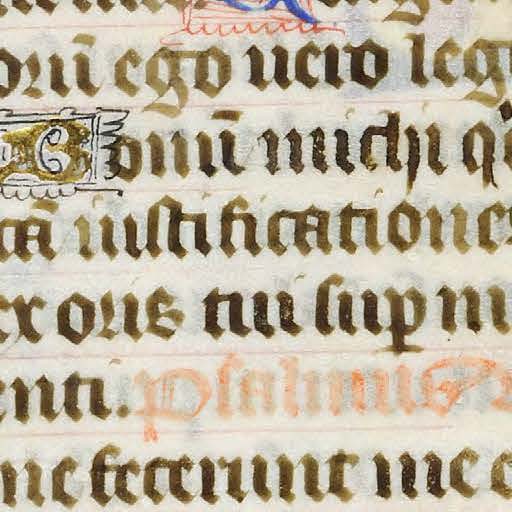 orū ego uero leg
Bonū michi q
cā iustificationes
ex oris tui sup m
enti. Psalmus
me fecerunt me